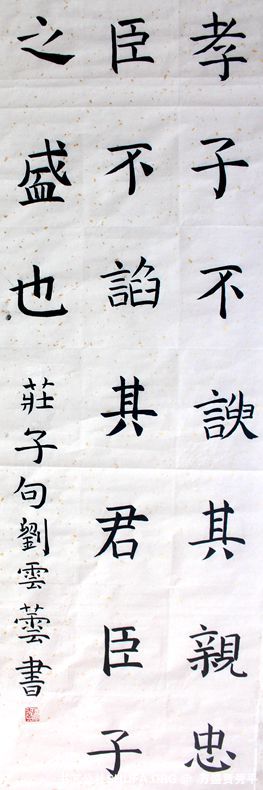 孝子不諛其親忠
臣不諂其君臣子
之盛也
莊子句劉雲蕓書